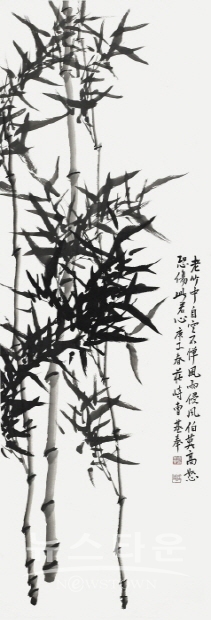 老竹中自空不憚風雨侵風伯莫高
恐傷此君心庚子春峙曺基奉
뉴스타운
NEWSTOWN